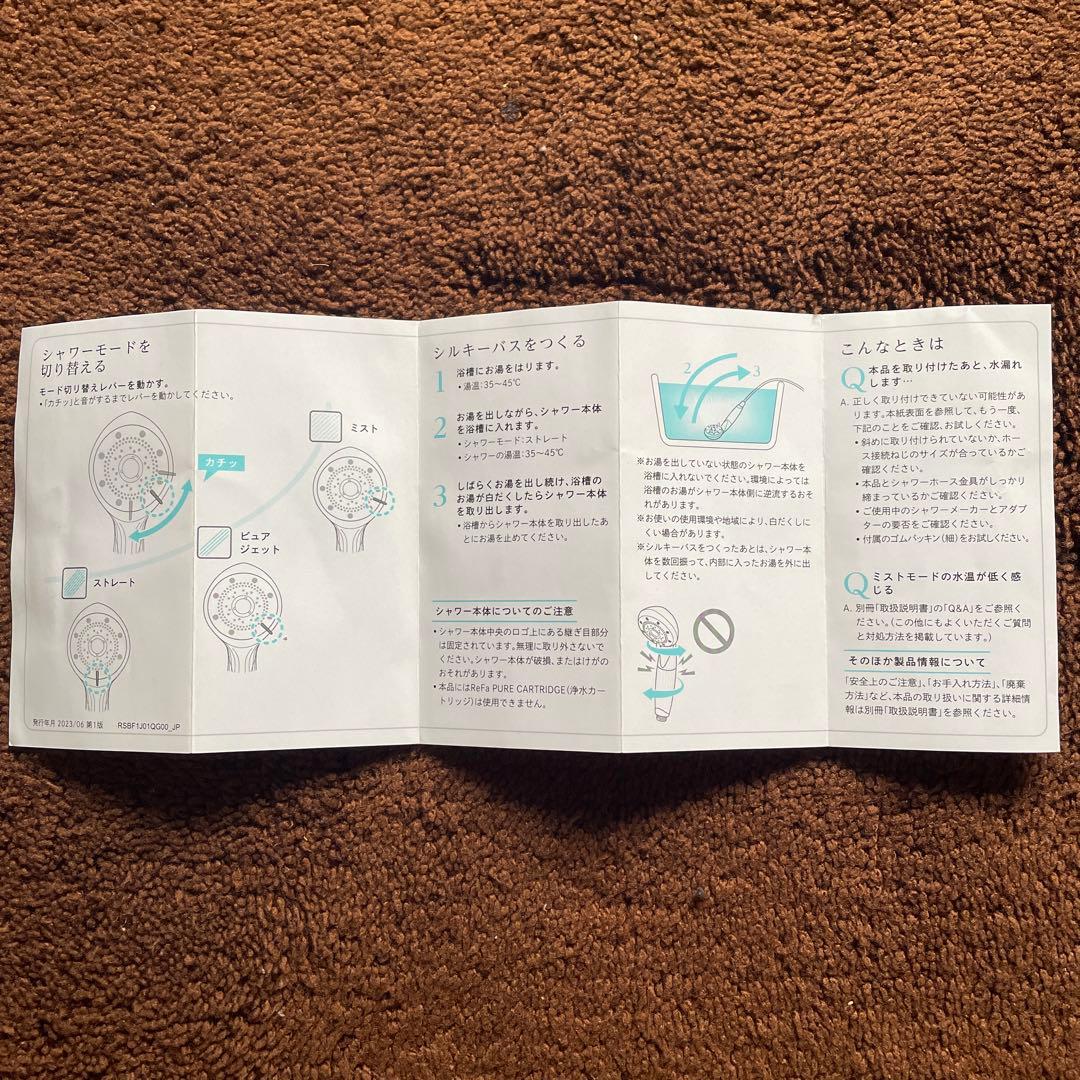 シャワーモードを
切り替える
モード切り替えレバーを動かす。
・「カチッ」と音がするまでレバーを動かしてください。
カチッ
ミスト
ピュア
ジェット
ストレート
発行年月 2023/06 第1版
RSBF1J01QG00_JP
シルキーバスをつくる
1 浴槽にお湯をはります。
・湯温：35～45℃
2 お湯を出しながら、シャワー本体
を浴槽に入れます。
・シャワーモード：ストレート
・シャワーの湯温：35～45℃
3 しばらくお湯を出し続け、浴槽の
お湯が白だくしたらシャワー本体
を取り出します。
・浴槽からシャワー本体を取り出したあ
とにお湯を止めてください。
シャワー本体についてのご注意
・シャワー本体中央のロゴ上にある継ぎ目部分
は固定されています。無理に取り外さないで
ください。シャワー本体が破損、またはけがの
おそれがあります。
・本品にはReFa PURE CARTRIDGE（浄水カー
トリッジ）は使用できません。
2
3
※お湯を出していない状態のシャワー本体を
浴槽に入れないでください。環境によっては
浴槽のお湯がシャワー本体側に逆流するおそ
れがあります。
※お使いの使用環境や地域により、白だくしに
くい場合があります。
※シルキーバスをつくったあとは、シャワー本
体を数回振って、内部に入ったお湯を外に出
してください。
こんなときは
Q 本品を取り付けたあと、水漏れ
します…
A. 正しく取り付けできていない可能性があ
ります。本紙表面を参照して、もう一度、
下記のことをご確認、お試しください。
・斜めに取り付けられていないか、ホー
ス接続ねじのサイズが合っているかご
確認ください。
・本品とシャワーホース金具がしっかり
締まっているかご確認ください。
・ご使用中のシャワーメーカーとアダプ
ターの要否をご確認ください。
・付属のゴムパッキン（細）をお試しください。
Q ミストモードの水温が低く感
じる
A. 別冊「取扱説明書」の「Q&A」をご参照く
ださい。（この他にもよくいただくご質問
と対処方法を掲載しています。）
そのほか製品情報について
「安全上のご注意」、「お手入れ方法」、「廃棄
方法」など、本品の取り扱いに関する詳細情
報は別冊「取扱説明書」を参照ください。